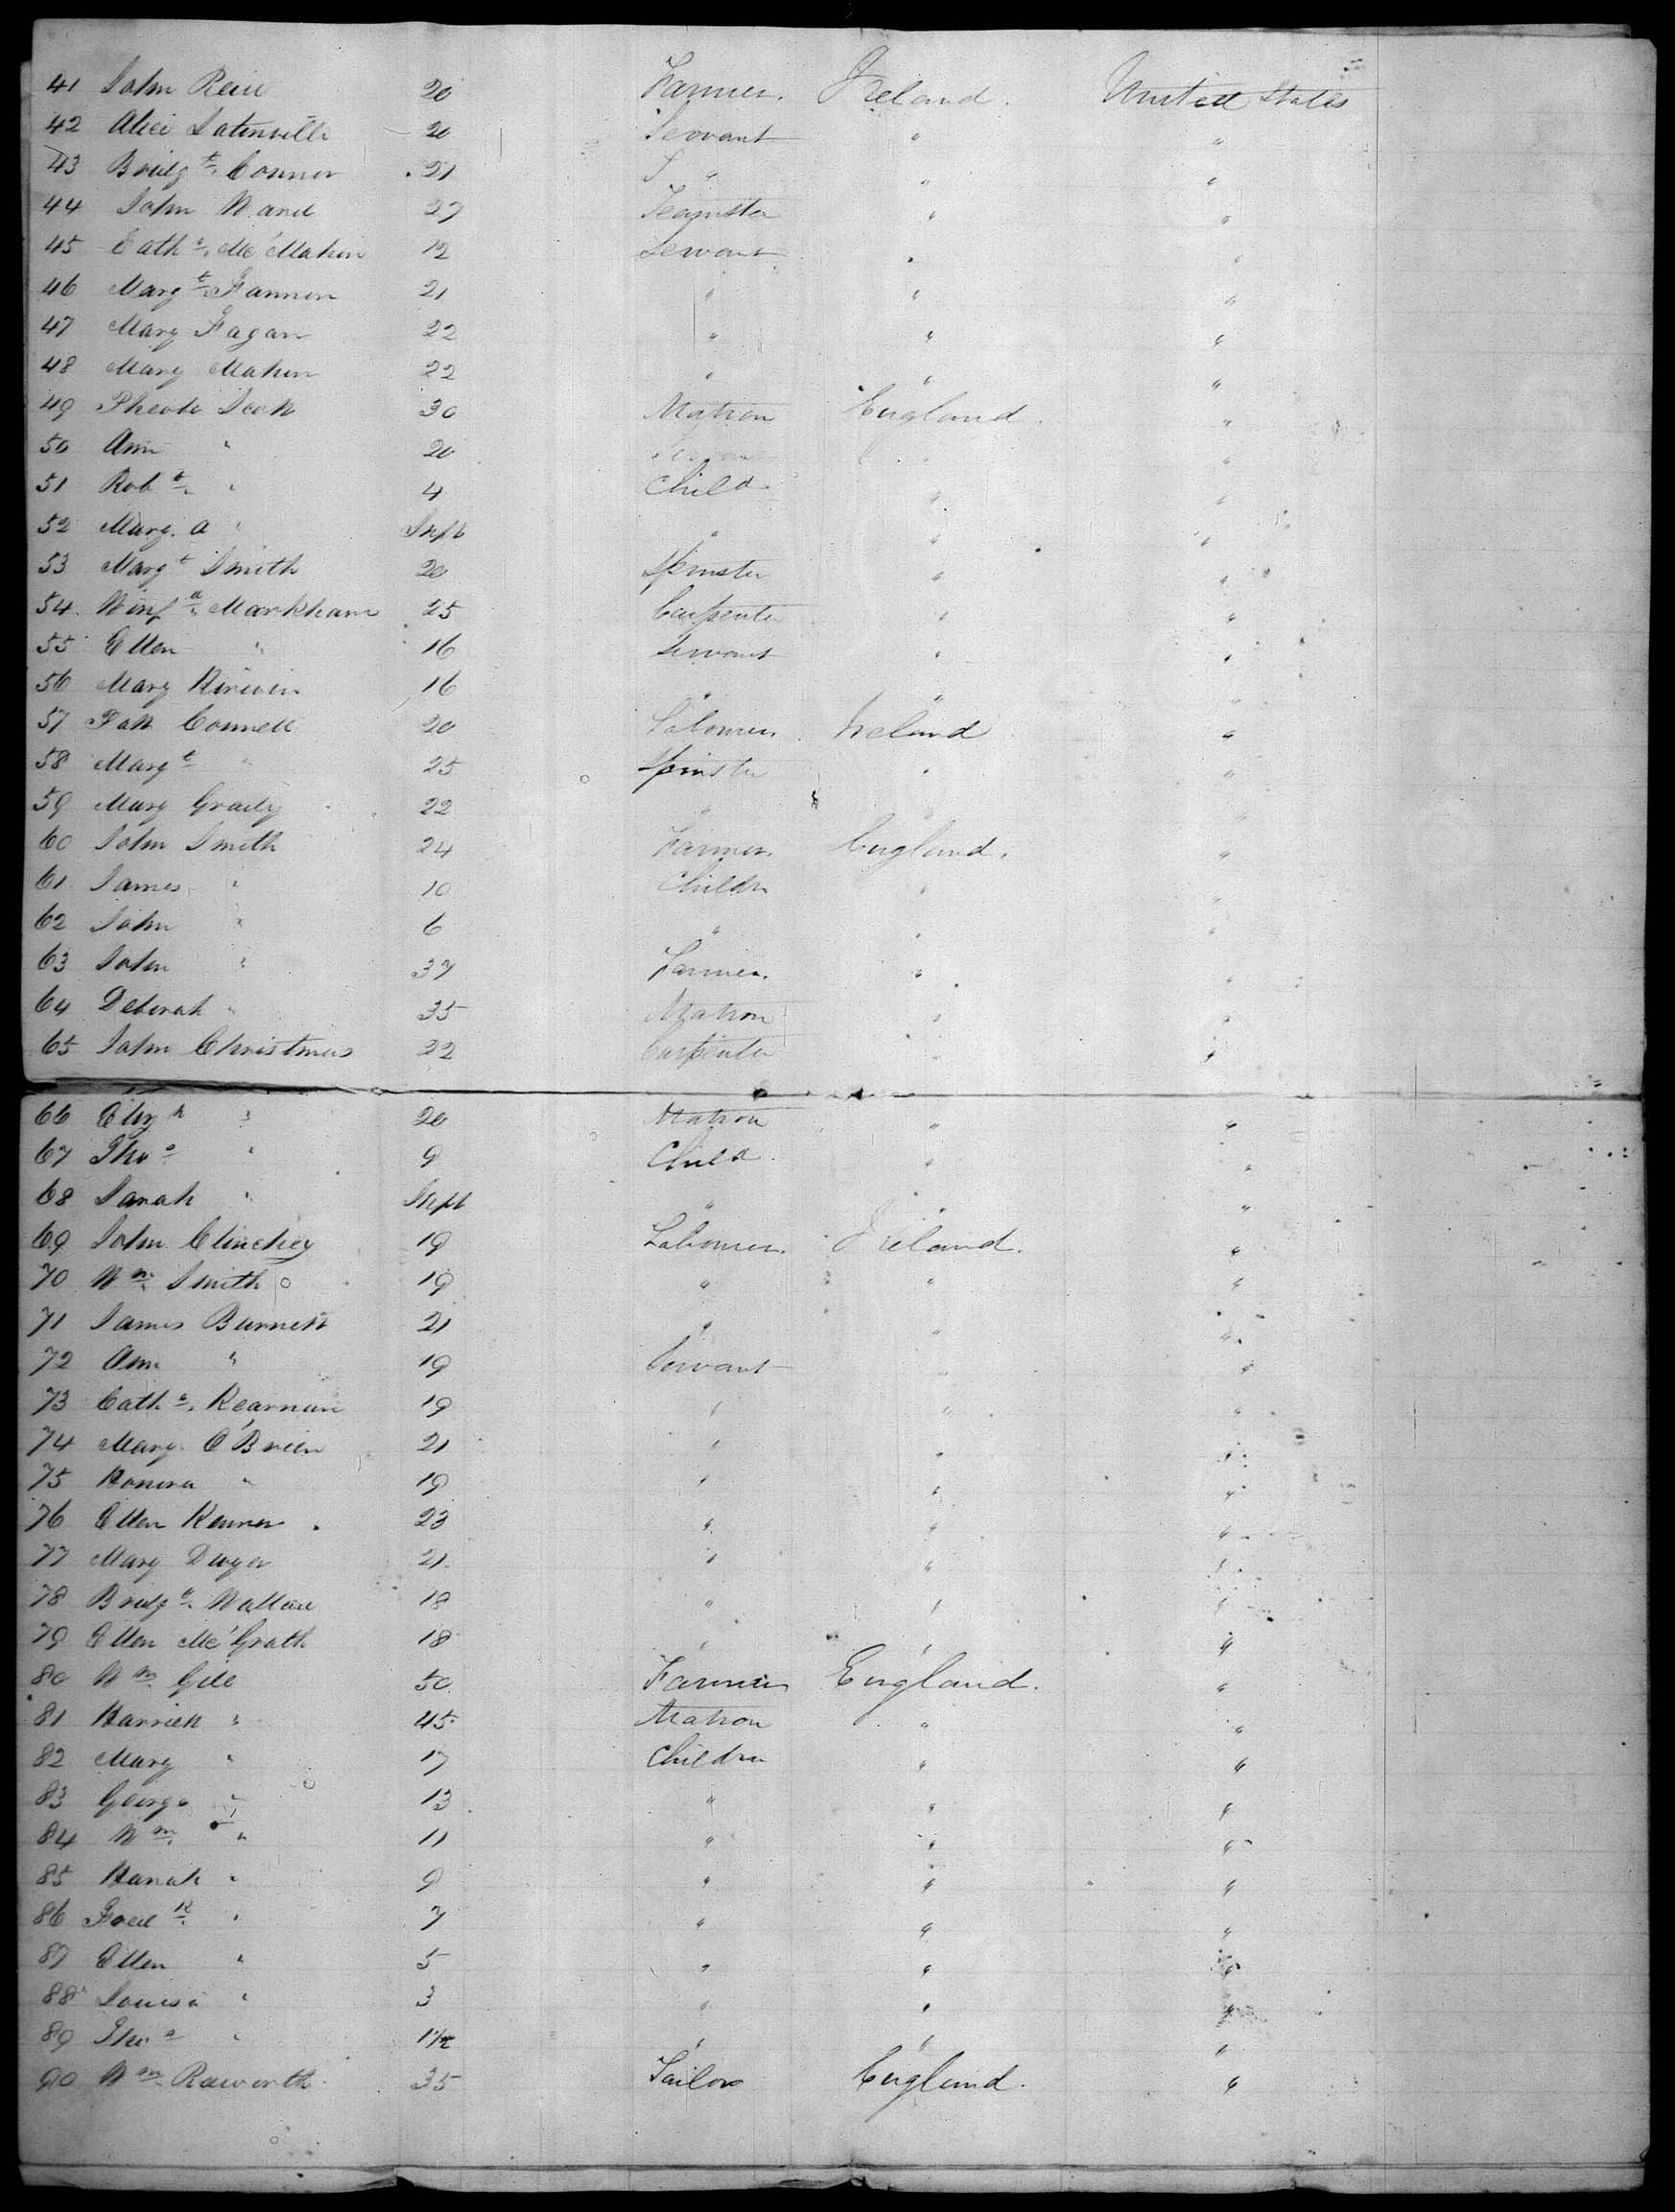 41 John Reid 20 Farmer. Ireland. United States
42 Alice 20 Servant " "
43 Bridgt. Connor 21 S " " "
44 John Ward 27 Teamster " "
45 Cathe. McMahon 12 Servant " "
46 Margt. Fannon 21 " " "
47 Mary Fagan 22 " " "
48 Mary Mahon 22 " " "
49 Pheobe Scott 30 Matron England. "
50 Ann " 20 Servant " "
51 Robt. " 4 Child " "
52 Mary. A " Inft " " "
53 Margt Smith 20 Spinster " "
54. Winfd. Markham 25 Carpenter " "
55 Ellen " 16 Servant " "
56 Mary Kirwin 16 " " "
57 Patt Connell 20 Labourer. Ireland "
58 Margt " 25 Spinster " "
59 Mary Grady 22 " " "
60 John Smith 24 Farmer. England. "
61 James " 10 Childn " "
62 John " 6 " " "
63 John " 37 Farmer. " "
64 Deborah " 35 Matron " "
65 John Christmas 22 Carpenter " "
66 Elizh " 20 Matron " "
67 Thos " 9 Child " "
68 Sarah " Inft " " "
69 John Clinchey 19 Labourer. Ireland. "
70 Wm. Smith 19 " " "
71 James Burnett 21 " " "
72 Ann " 19 Servant " "
73 Cathe. Kearnan 19 " " "
74 Mary O'Brien 21 " " "
75 Honora " 19 " " "
76 Ellen 23 " " "
77 Mary Dwyer 21 " " "
78 Bridgt. Wallace 18 " " "
79 Ellen McGrath 18 " " "
80 Wm. Gill 50 Farmer England. "
81 Harriett " 45 Matron " "
82 Mary " 17 Children " "
83 George " 13 " " "
84 Wm. " 11 " " "
85 Hanah " 9 " " "
86 Fredk. " 7 " " "
87 Ellen " 5 " " "
88 Louisa " 3 " " "
89 Thos " 1½ " " "
90 Wm. Raworth 35 Tailor England. "